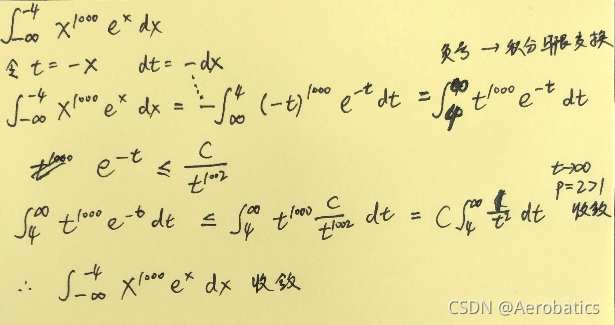 ∫_{-∞}^{-4} x^{1000} e^x dx
令 t = -x dt = -dx
负号 → 积分上下限变换
∫_{-∞}^{-4} x^{1000} e^x dx = -∫_{∞}^{4} (-t)^{1000} e^{-t} dt = ∫_{4}^{∞} t^{1000} e^{-t} dt
e^{-t} ≤ C/t^{1002}
t→∞
p=2>1
收敛
∫_{4}^{∞} t^{1000} e^{-t} dt ≤ ∫_{4}^{∞} t^{1000} C/t^{1002} dt = C ∫_{4}^{∞} 1/t^2 dt
∴ ∫_{-∞}^{-4} x^{1000} e^x dx 收敛
CSDN @Aerobatics